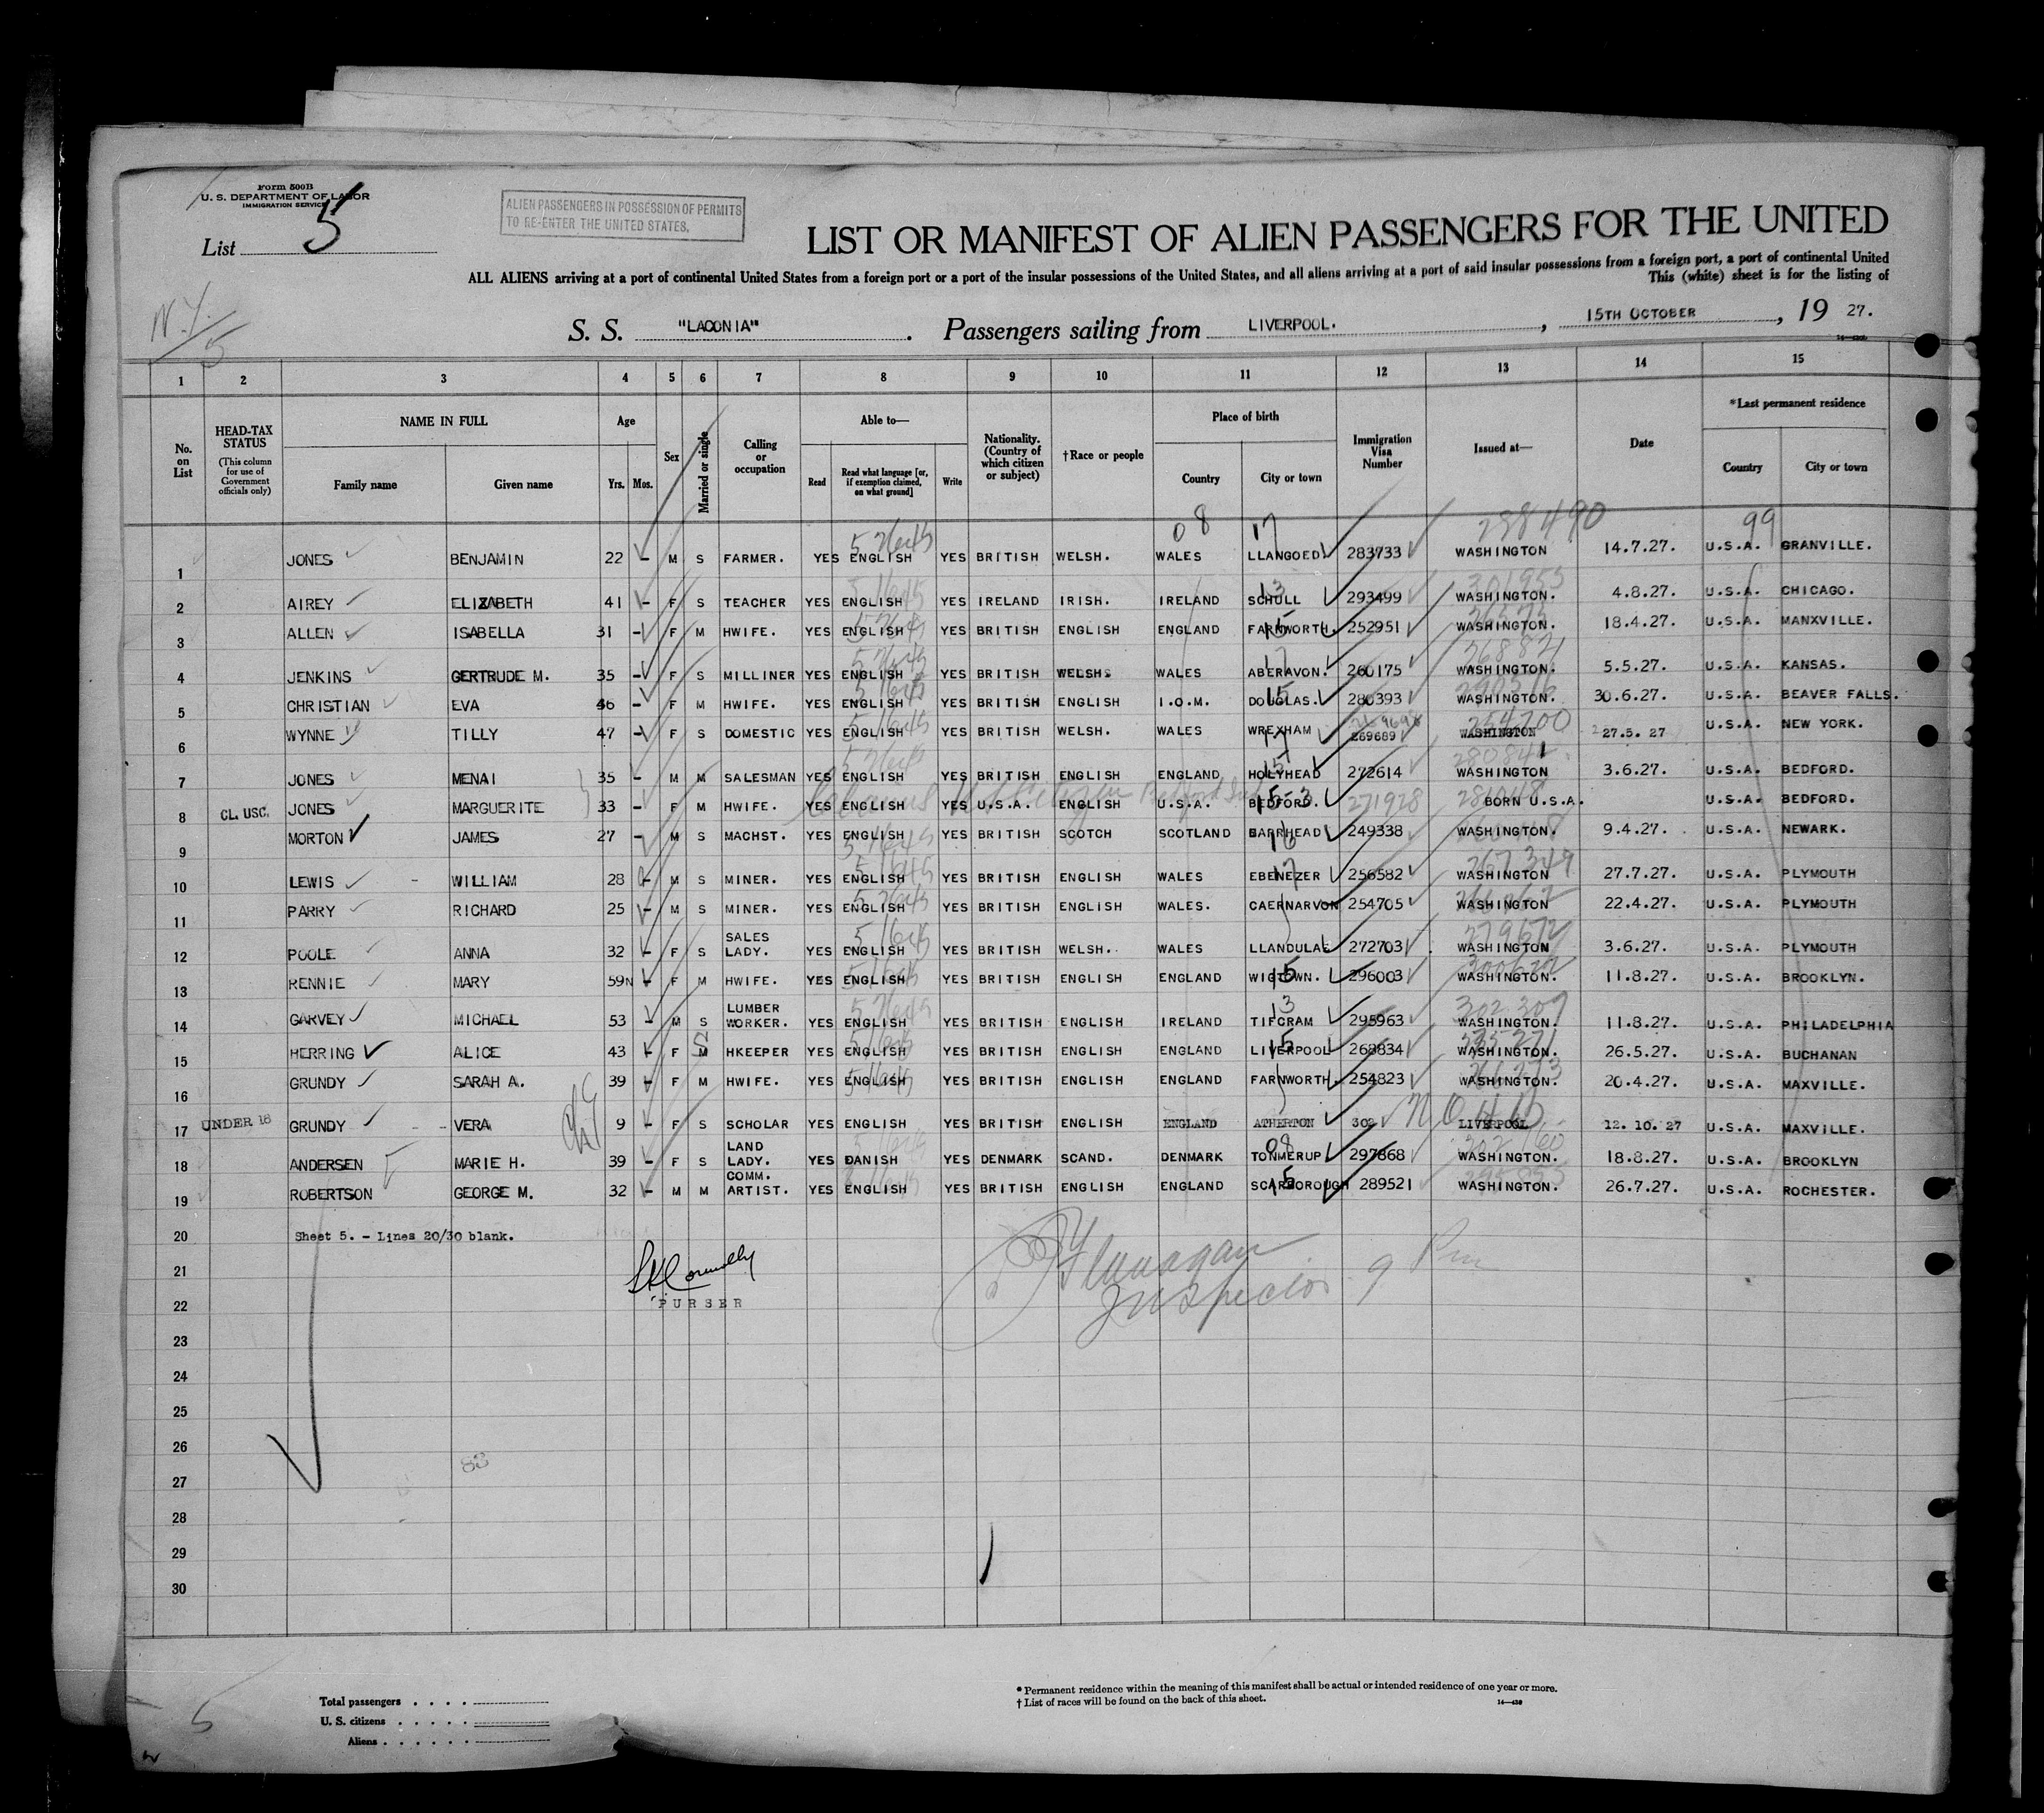 Form 500B
U. S. DEPARTMENT OF LABOR
IMMIGRATION SERVICE
List 5
ALIEN PASSENGERS IN POSSESSION OF PERMITS
TO RE-ENTER THE UNITED STATES.
LIST OR MANIFEST OF ALIEN PASSENGERS FOR THE UNITED
ALL ALIENS arriving at a port of continental United States from a foreign port or a port of the insular possessions of the United States, and all aliens arriving at a port of said insular possessions from a foreign port, a port of continental United
This (white) sheet is for the listing of
N.Y. 5
S. S. "LACONIA". Passengers sailing from LIVERPOOL., 15TH OCTOBER, 19 27.
1 2 3 4 5 6 7 8 9 10 11 12 13 14 15
No. on List
HEAD-TAX STATUS
(This column for use of Government officials only)
NAME IN FULL
Family name Given name
Age
Yrs. Mos.
Sex
Married or single
Calling or occupation
Able to—
Read
Read what language [or, if exemption claimed, on what ground]
Write
Nationality. (Country of which citizen or subject)
†Race or people
Place of birth
Country City or town
Immigration Visa Number
Issued at—
Date
*Last permanent residence
Country City or town
08 17 288490 99
1 JONES BENJAMIN 22 - M S FARMER. YES ENGLISH YES BRITISH WELSH. WALES LLANGOED 283733 WASHINGTON 14.7.27. U.S.A. GRANVILLE.
2 AIREY ELIZABETH 41 - F S TEACHER YES ENGLISH YES IRELAND IRISH. IRELAND SCHULL 293499 WASHINGTON. 4.8.27. U.S.A. CHICAGO.
3 ALLEN ISABELLA 31 - F M HWIFE. YES ENGLISH YES BRITISH ENGLISH ENGLAND FARNWORTH 252951 WASHINGTON. 18.4.27. U.S.A. MANXVILLE.
4 JENKINS GERTRUDE M. 35 - F S MILLINER YES ENGLISH YES BRITISH WELSH. WALES ABERAVON. 260175 WASHINGTON. 5.5.27. U.S.A. KANSAS.
5 CHRISTIAN EVA 46 - F M HWIFE. YES ENGLISH YES BRITISH ENGLISH I.O.M. DOUGLAS. 280393 WASHINGTON. 30.6.27. U.S.A. BEAVER FALLS.
6 WYNNE TILLY 47 - F S DOMESTIC YES ENGLISH YES BRITISH WELSH. WALES WREXHAM 269689 WASHINGTON 27.5. 27 U.S.A. NEW YORK.
7 JONES MENAI 35 - M M SALESMAN YES ENGLISH YES BRITISH ENGLISH ENGLAND HOLYHEAD 272614 WASHINGTON 3.6.27. U.S.A. BEDFORD.
8 CL. USC. JONES MARGUERITE 33 - F M HWIFE. YES ENGLISH YES U.S.A. ENGLISH U.S.A. BEDFORD. 271928 BORN U.S.A. U.S.A. BEDFORD.
9 MORTON JAMES 27 - M S MACHST. YES ENGLISH YES BRITISH SCOTCH SCOTLAND BARRHEAD 249338 WASHINGTON. 9.4.27. U.S.A. NEWARK.
10 LEWIS - WILLIAM 28 - M S MINER. YES ENGLISH YES BRITISH ENGLISH WALES EBENEZER 256582 WASHINGTON 27.7.27. U.S.A. PLYMOUTH
11 PARRY RICHARD 25 - M S MINER. YES ENGLISH YES BRITISH ENGLISH WALES. CAERNARVON 254705 WASHINGTON 22.4.27. U.S.A. PLYMOUTH
12 POOLE ANNA 32 - F S SALES LADY. YES ENGLISH YES BRITISH WELSH. WALES LLANDULAE 272703 WASHINGTON 3.6.27. U.S.A. PLYMOUTH
13 RENNIE MARY 59 - F M HWIFE. YES ENGLISH YES BRITISH ENGLISH ENGLAND WIGTOWN. 296003 WASHINGTON. 11.8.27. U.S.A. BROOKLYN.
14 GARVEY MICHAEL 53 - M S LUMBER WORKER. YES ENGLISH YES BRITISH ENGLISH IRELAND TIFCRAM 295963 WASHINGTON. 11.8.27. U.S.A. PHILADELPHIA
15 HERRING ALICE 43 - F M S HKEEPER YES ENGLISH YES BRITISH ENGLISH ENGLAND LIVERPOOL 268834 WASHINGTON. 26.5.27. U.S.A. BUCHANAN
16 GRUNDY SARAH A. 39 - F M HWIFE. YES ENGLISH YES BRITISH ENGLISH ENGLAND FARNWORTH 254823 WASHINGTON. 20.4.27. U.S.A. MAXVILLE.
17 UNDER 16 GRUNDY VERA 9 - F S SCHOLAR YES ENGLISH YES BRITISH ENGLISH ENGLAND ATHERTON 302 LIVERPOOL 12. 10. 27 U.S.A. MAXVILLE.
18 ANDERSEN MARIE H. 39 - F S LAND LADY. YES DANISH YES DENMARK SCAND. DENMARK TOMMERUP 297868 WASHINGTON. 18.8.27. U.S.A. BROOKLYN
19 ROBERTSON GEORGE M. 32 - M M COMM. ARTIST. YES ENGLISH YES BRITISH ENGLISH ENGLAND SCARBOROUGH 289521 WASHINGTON. 26.7.27. U.S.A. ROCHESTER.
20 Sheet 5. - Lines 20/30 blank.
21
22 PURSER
Flanagan
Inspector
23
24
25
26
27
28
29
30
83
5
Total passengers
U. S. citizens
Aliens
* Permanent residence within the meaning of this manifest shall be actual or intended residence of one year or more.
† List of races will be found on the back of this sheet.